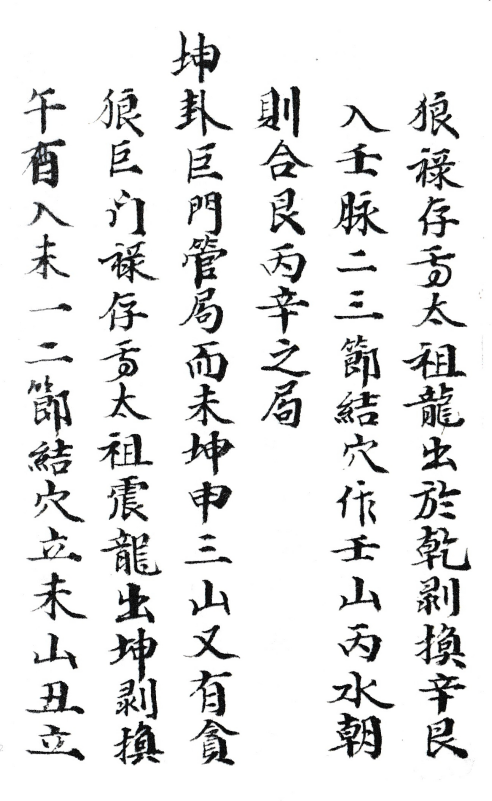 狼祿存為太祖龍出於乾剥換辛艮
入壬脉二三節結穴作壬山丙水朝
則合艮丙辛之局
坤卦巨門管局而未坤申三山又有貪
狼巨门祿存為太祖震龍出坤剥換
午酉入未一二節結穴立未山丑立